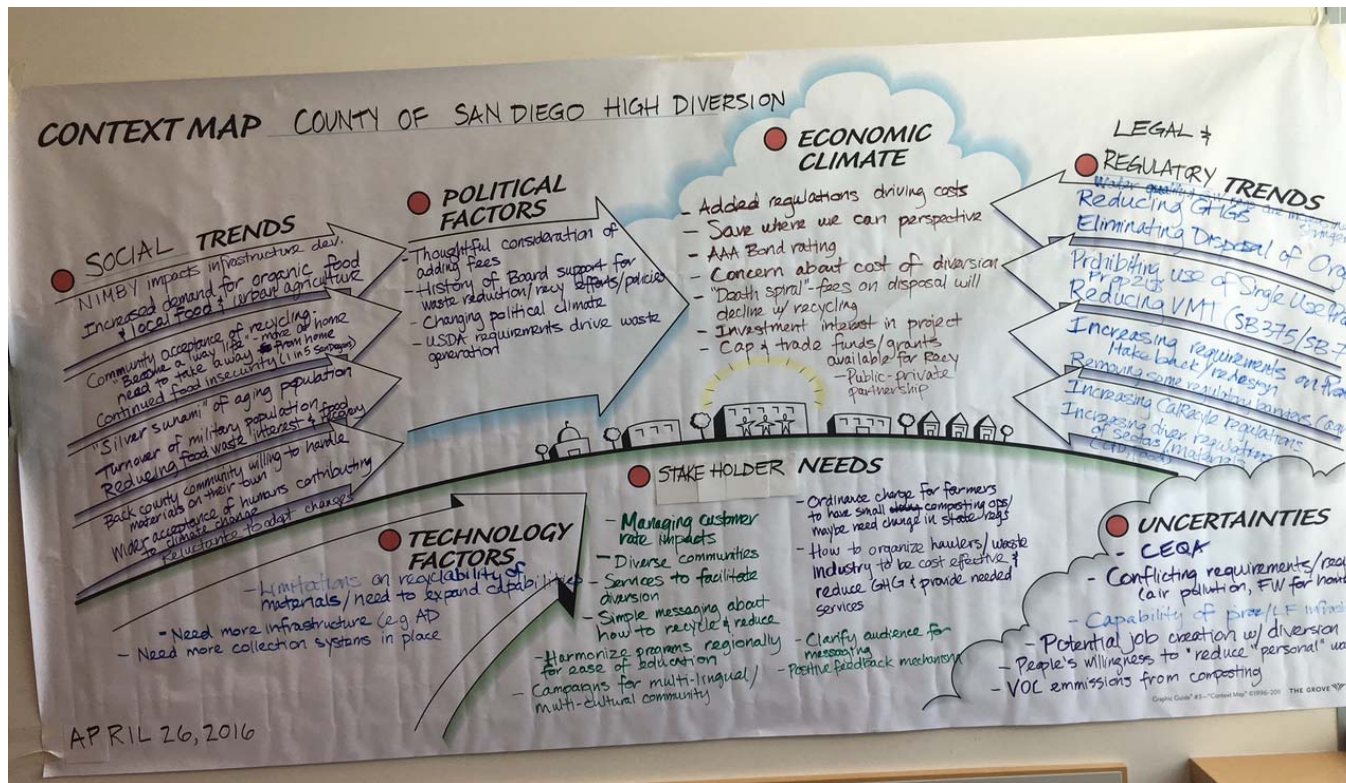 CONTEXT MAP COUNTY OF SAN DIEGO HIGH DIVERSION
SOCIAL TRENDS
NIMBY impacts infrastructure dev.
Increased demand for organic food
& local food & urban agriculture
Community acceptance of recycling-
"Become a way life" - more at home
need to take away from home
Continued food insecurity (1 in 5 San Diegans)
"Silver sunami" of aging population
Turnover of military population
Reducing food waste interest & food
Back county community willing to handle
materials on their own
Wider acceptance of humans contributing
to climate change
Reluctance to adapt changes
POLITICAL
FACTORS
- Thoughtful consideration of
adding fees
- History of Board support for
waste reduction/recy efforts/policies
- Changing political climate
- USDA requirements drive waste
generation
ECONOMIC
CLIMATE
- Added regulations driving costs
- Save where we can perspective
- AAA Bond rating
- Concern about cost of diversion
- "Death spiral" - fees on disposal will
decline w/ recycling
- Investment interest in project
- Cap & trade funds/grants
available for Recy
- Public-private
partnership
LEGAL &
REGULATORY TRENDS
Reducing GHGs
Eliminating Disposal of
Prohibiting use of Single Use
Reducing VMT (SB375/SB
Increasing requirements on
take back/redesign
Removing some regulatory
Increasing CalRecycle Regulations
of sectors/materials
TECHNOLOGY
FACTORS
- Limitations on recyclability of
materials/need to expand capabilities
- Need more infrastructure (e.g. AD
- Need more collection systems in place
STAKE HOLDER NEEDS
- Managing customer
rate impacts
- Diverse communities
- Services to facilitate
diversion
- Simple messaging about
how to recycle & reduce
- Harmonize programs regionally
for ease of education
- Campaigns for multi-lingual/
multi-cultural community
- Ordinance change for farmers
to have small composting ops/
maybe need change in state regs
- How to organize haulers/waste
Industry to be cost effective &
reduce GHG & provide needed
services
- Clarify audience for
messaging
- Positive feedback mechanism
UNCERTAINTIES
- CEQA
- Conflicting requirements/
(air pollution, FW for
- Capability of
- Potential job creation w/ diversion
- People's willingness to "reduce" personal
- VOC emmissions from composting
Graphic Guide® #3—"Context Map" ©1996-201 THE GROVE
APRIL 26, 2016